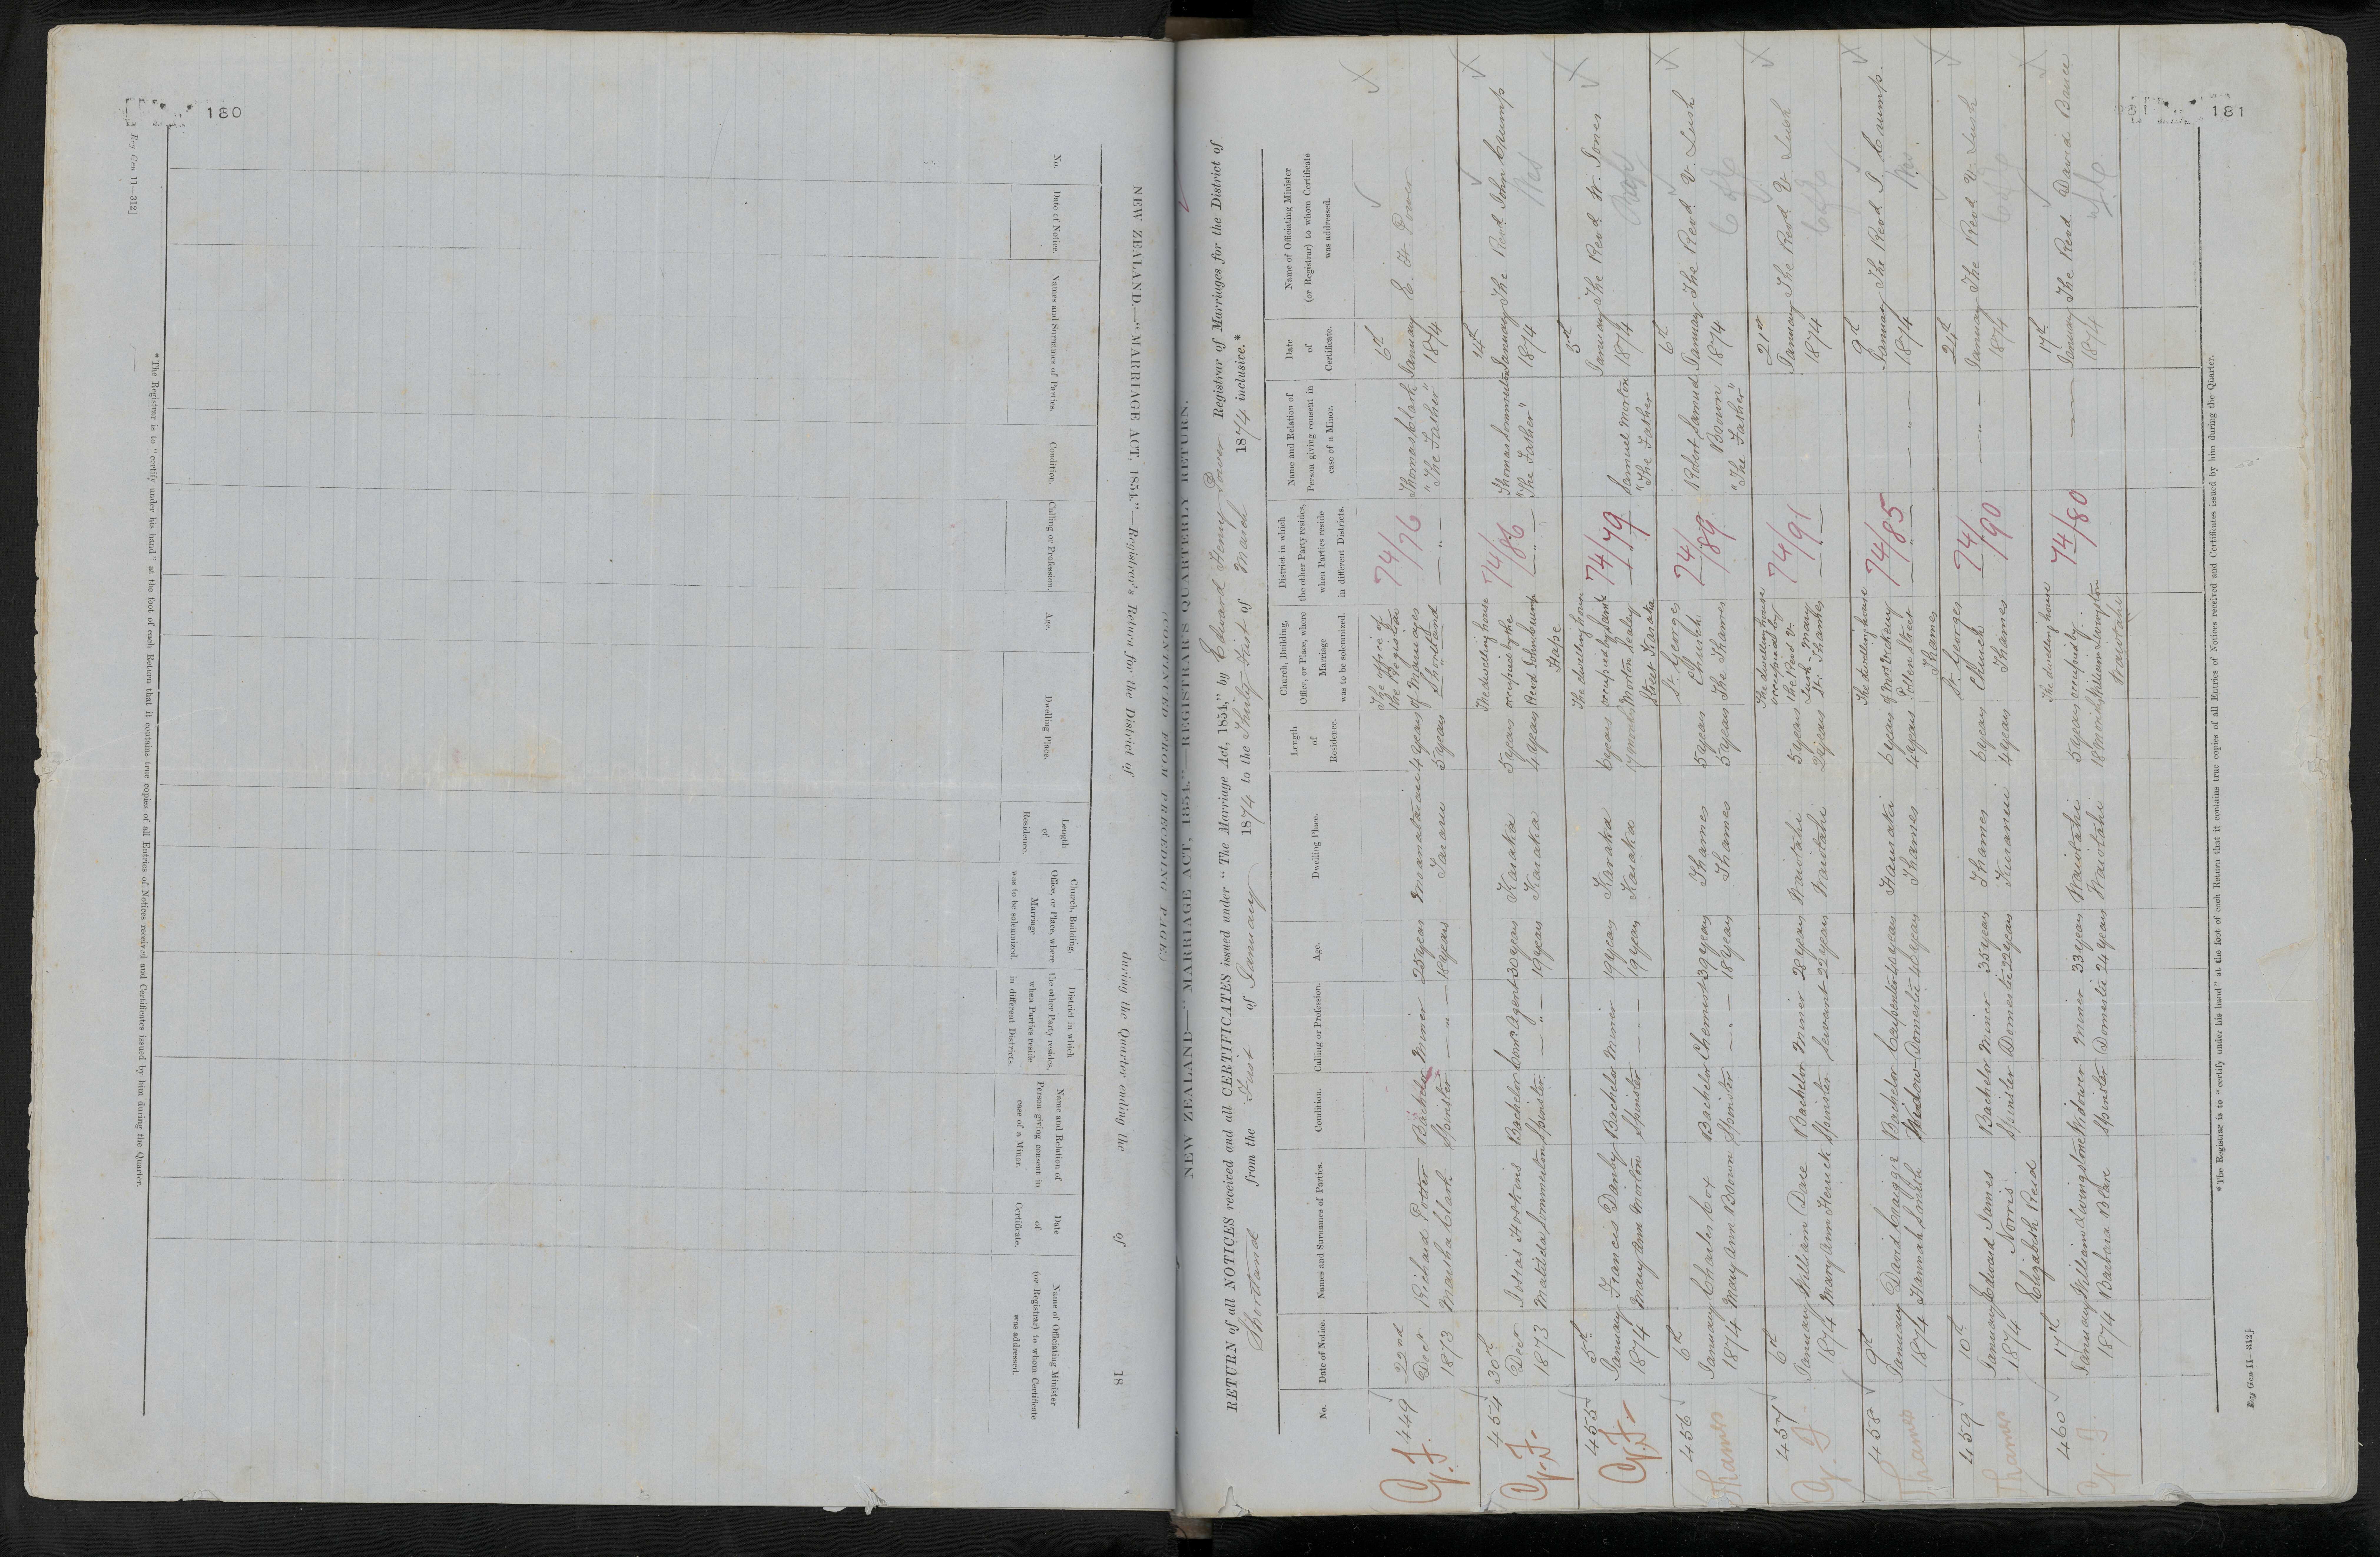 180
Reg Gen 11—312]
NEW ZEALAND.—"MARRIAGE ACT, 1854."—Registrar's Return for the District of during the Quarter ending the of 18
No.
Date of Notice.
Names and Surnames of Parties.
Condition.
Calling or Profession.
Age.
Dwelling Place.
Length of Residence.
Church, Building, Office, or Place, where Marriage was to be solemnized.
District in which the other Party resides, when Parties reside in different Districts.
Name and Relation of Person giving consent in case of a Minor.
Date of Certificate.
Name of Officiating Minister (or Registrar) to whom Certificate was addressed.
*The Registrar is to "certify under his hand" at the foot of each Return that it contains true copies of all Entries of Notices received and Certificates issued by him during the Quarter.
181
NEW ZEALAND—"MARRIAGE ACT, 1854."—REGISTRAR'S QUARTERLY RETURN.
RETURN of all NOTICES received and all CERTIFICATES issued under "The Marriage Act, 1854," by Edward Henry Power Registrar of Marriages for the District of
Shortland from the First of January 1874 to the Thirty First of March 1874 inclusive.*
No.
Date of Notice.
Names and Surnames of Parties.
Condition.
Calling or Profession.
Age.
Dwelling Place.
Length of Residence.
Church, Building, Office, or Place, where Marriage was to be solemnized.
District in which the other Party resides, when Parties reside in different Districts.
Name and Relation of Person giving consent in case of a Minor.
Date of Certificate.
Name of Officiating Minister (or Registrar) to whom Certificate was addressed.
449 22nd Decr 1873
Richard Potter Bachelor Miner 25 years 4 years
Martha Clark Spinster — " — 18 years Tararu 5 years
The office of the Registrar of Marriages Shortland
74/76
Thomas Clark "The Father"
6th January 1874
E. H. Power
454 30th Decr 1873
Josiah Hoskins Bachelor Comn Agent 30 years Karaka 5 years
Matilda Sommerton Spinster — " — 19 years Karaka 4 years
The dwelling house occupied by the Revd John Crump Hape
74/86
Thomas Sommerton "The Father"
14th January 1874
The Revd John Crump
455 5th January 1874
Francis Danby Bachelor Miner 19 years Karaka 6 years
Mary Ann Morton Spinster — " — 19 years Karaka 17 months
The dwelling house occupied by Saml Morton Sealey Street Karaka
74/79
Samuel Morton "The Father"
5th January 1874
The Revd W. Jones
456 6th January 1874
Charles Cox Bachelor Chemist 39 years Thames 5 years
Mary Ann Bawn Spinster — " — 18 years Thames 5 years
St. Georges Church The Thames
74/89
Robert Samuel Bawn "The Father"
6th January 1874
The Revd V. Lush
C of E
Thames
457 6th January 1874
William Dare Bachelor Miner 28 years Waiotahi 5 years
Mary Ann Servant 22 years Waiotahi 2 years
The dwelling house occupied by the Revd V. Lush Mary St. Thames
74/91
21st January 1874
The Revd V. Lush
C of E
458 9th January 1874
David Craigie Bachelor Carpenter Hauraki 6 years
Hannah Smith Widow Domestic Thames 4 years
The dwelling house of Pollen Street Thames
74/85
9th January 1874
The Revd J. Crump.
Thames
459 10th January 1874
Edward James Norris Bachelor Miner 35 years Thames 6 years
Elizabeth Reid Spinster Domestic 22 years 4 years
St. Georges Church Thames
74/90
24th January 1874
The Revd V. Lush
Thames
460 17th January 1874
William Livingstone Widower Miner 33 years Waiotahi 5 years
Barbara Blair Spinster Domestic 24 years Waiotahi 18 months
The dwelling house occupied by William Livingston Waiotahi
74/80
17th January 1874
The Revd David Bruce
*The Registrar is to "certify under his hand" at the foot of each Return that it contains true copies of all Entries of Notices received and Certificates issued by him during the Quarter.
Reg Gen 11—312]